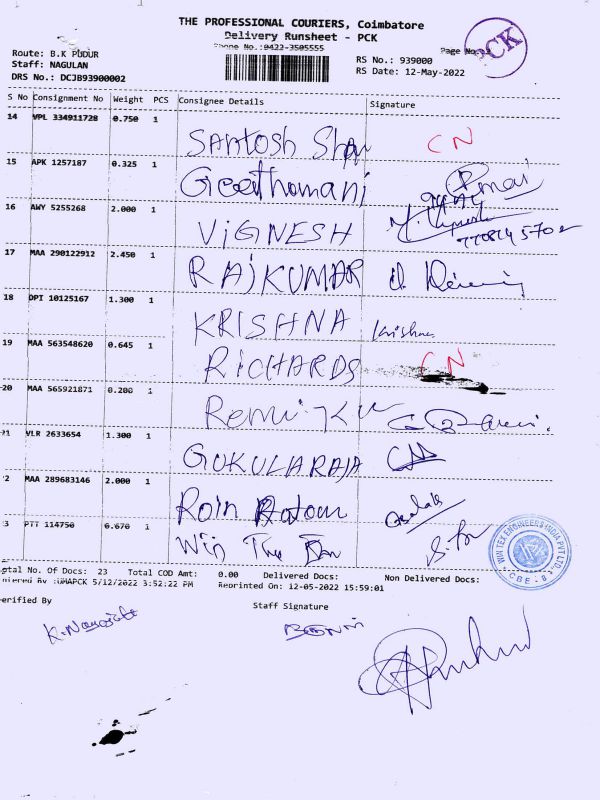 THE PROFESSIONAL COURIERS, Coimbatore
Delivery Runsheet - PCK
Phone No.:0422-3505555
Page No.:2
PCK
Route: B.K PUDUR
Staff: NAGULAN
DRS No.: DCJB93900002
RS No.: 939000
RS Date: 12-May-2022
S No Consignment No Weight PCS Consignee Details Signature
14 VPL 334911728 0.750 1
Santosh CN
15 APK 1257187 0.325 1
Geethamani
16 AWY 5255268 2.000 1
VIGNESH
17 MAA 290122912 2.450 1
RAJKUMAR
18 DPI 10125167 1.300 1
KRISHNA Krishna
19 MAA 563548620 0.645 1
RICHARDS CN
20 MAA 565921871 0.200 1
21 VLR 2633654 1.300 1
GOKULARAJA
2 MAA 289683146 2.000 1
Roin
3 PTT 114750 0.670 1
Win
WIN TEX ENGINEERS INDIA PVT LTD. CBE - 8
otal No. Of Docs: 23 Total COD Amt: 0.00 Delivered Docs: Non Delivered Docs:
ntered By :UMAPCK 5/12/2022 3:52:22 PM Reprinted On: 12-05-2022 15:59:01
erified By Staff Signature